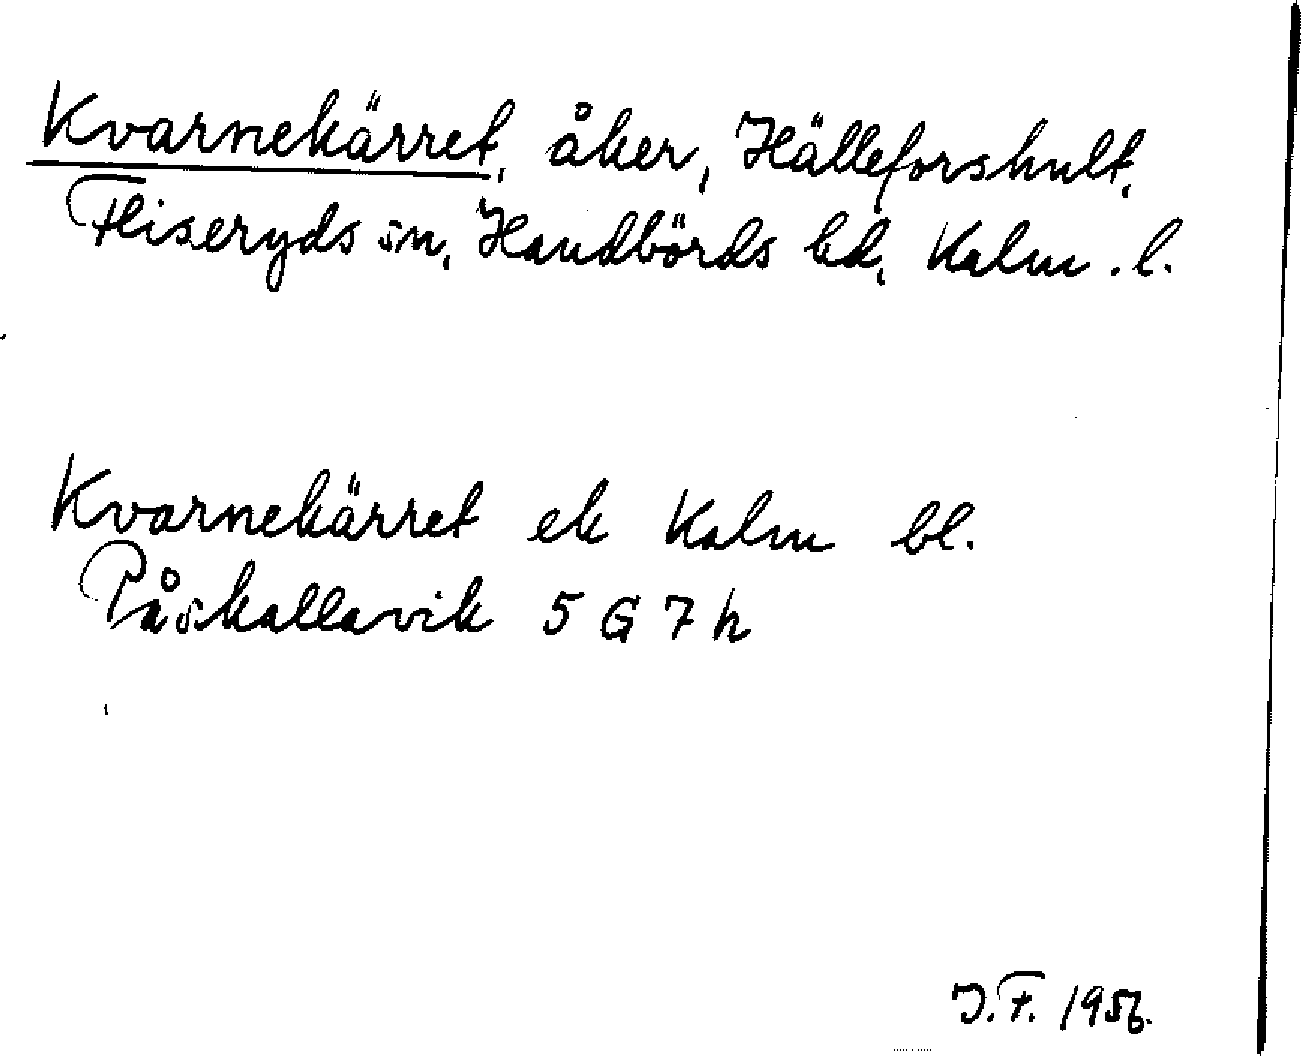 Kvarnekärret, åker, Hälleforshult,
Fliseryds sn, Handbörds hd, Kalm. l.
Kvarnekärret ek Kalm bl.
Påskallavik 5 G 7 h
J.F. 1956.